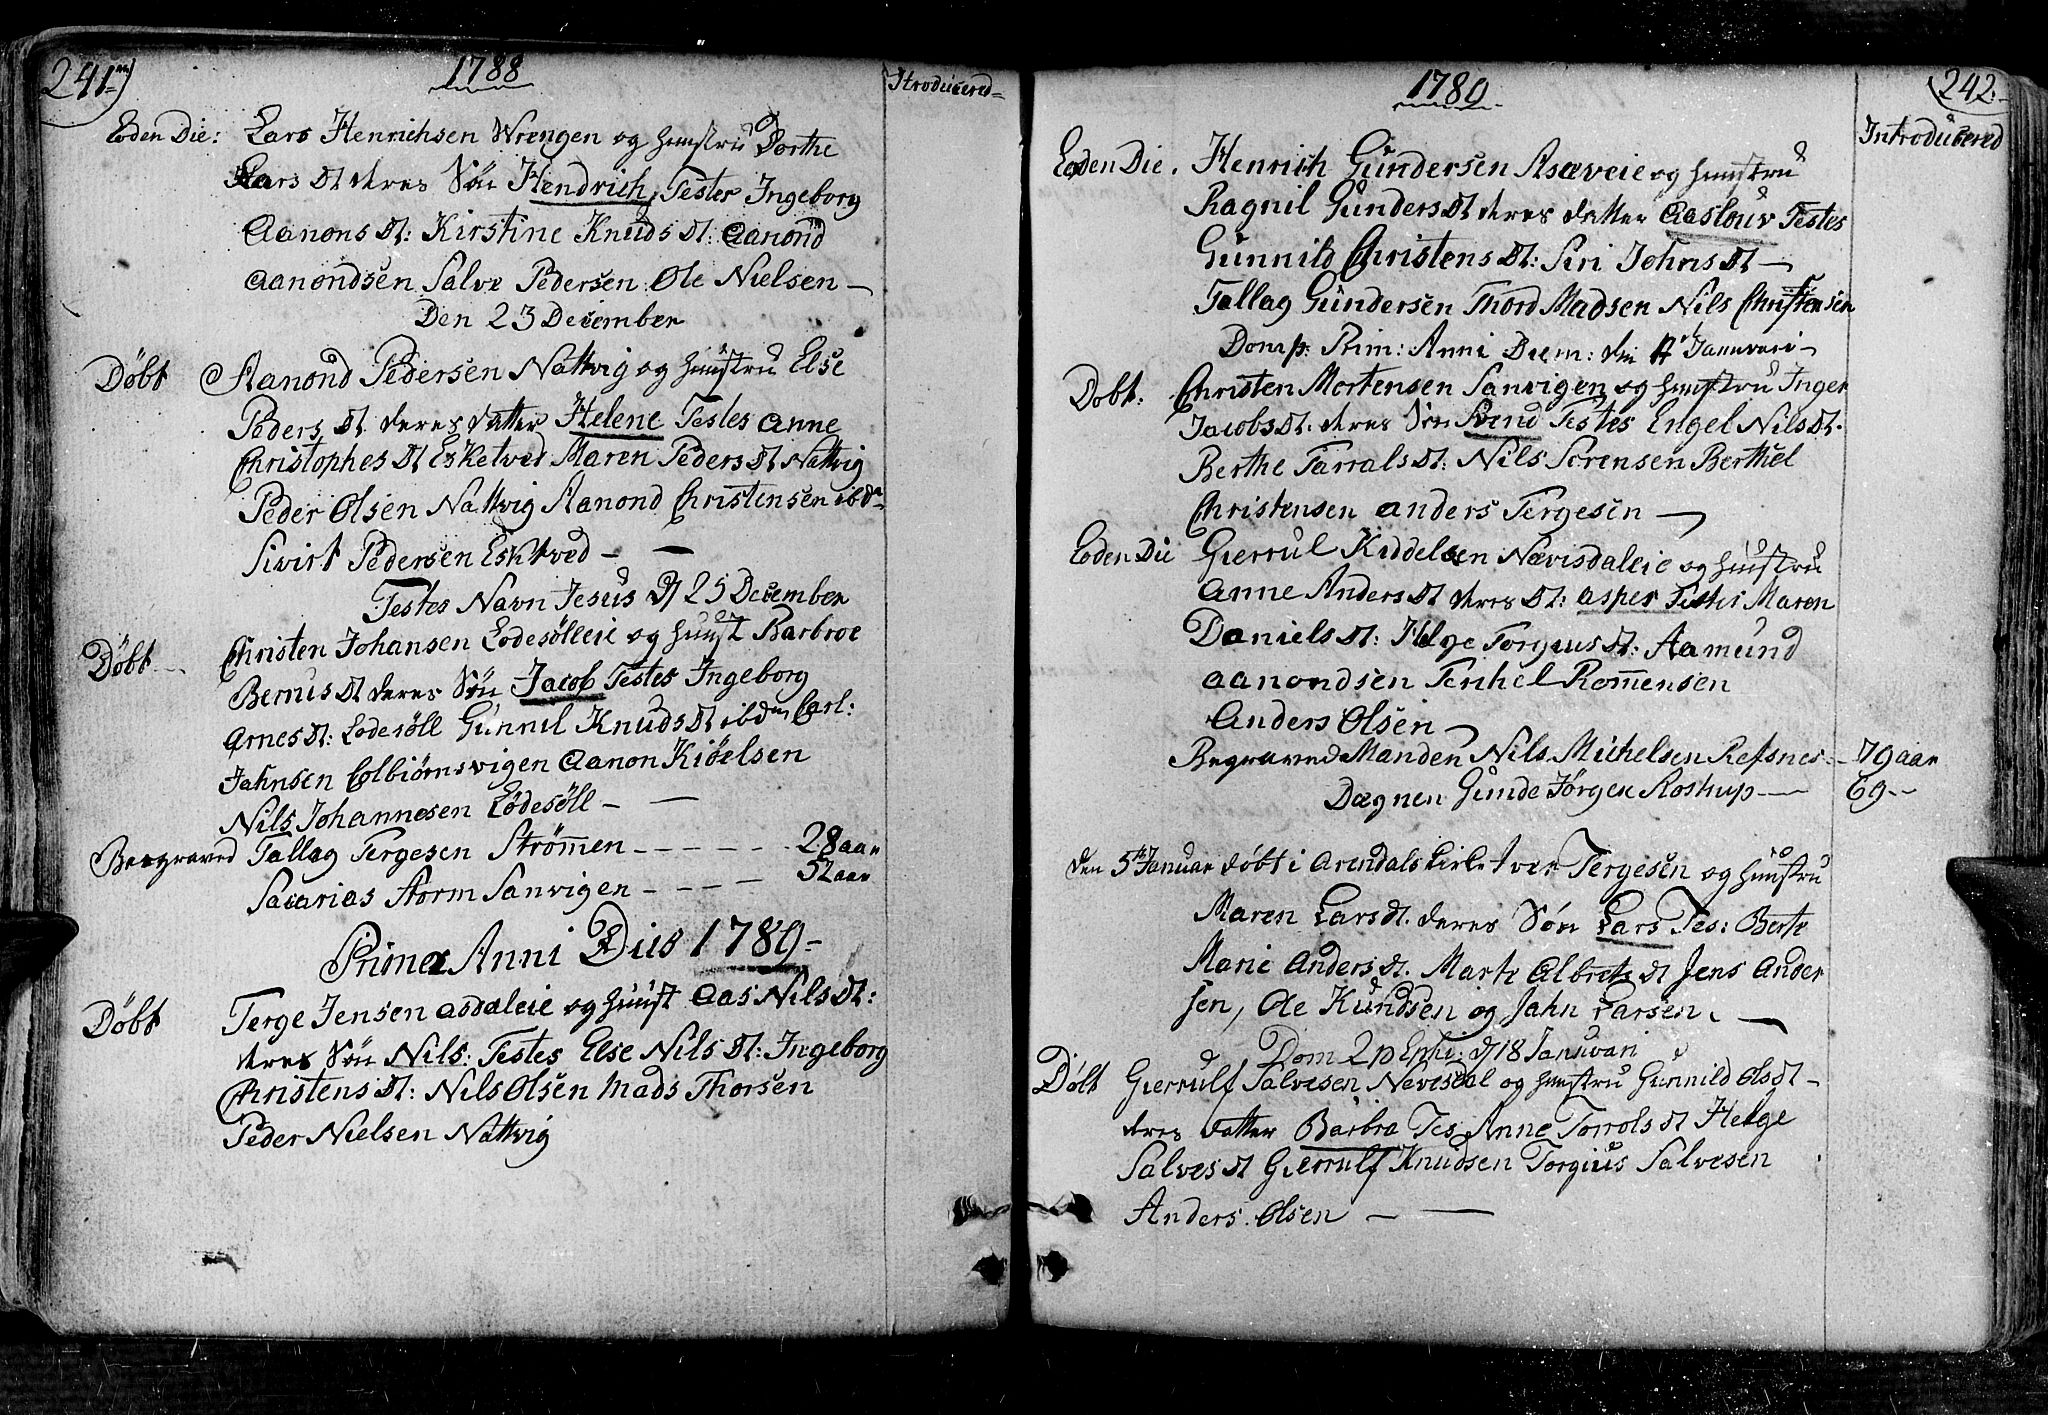 241
1788
Introducered
Eoden Die: Lars Henrichsen Wrengen og hustru Dorthe
Lars Dt deres Søn Hendrich, Testes Ingeborg
Aanons Dt: Kirstine Knuds Dt: Aanond
Aanondsen Salve Pedersen Ole Nielsen
Den 23 December
Døbt Aanond Pedersen Nattvig og hustru Else
Peders Dt deres datter Helene Testes Anne
Christophes Dt Esketved Maren Peders Dt Nattvig
Peder Olsen Nattvig Aanond Christensen ibd
Sivirt Pedersen Esktved
Festes Navn Jesus D 25 December
Døbt Christen Johansen Lodesølleie og hust Barbroe
Bernts Dt deres Søn Jacob Testes Ingeborg
Arnes Dt: Lodesøll Gunnil Knuds Dt ibdm Carl:
Jahnsen Colbiørnsvigen Aanon Kiøelsen
Nils Johannesen Lødesøll
Beegraved Tallag Tergesen Strømen 28 aar
Sacarias Storm Sanvigen 52 aar
Prima Anni Dies 1789
Døbt Terge Jensen Asdaleie og hust Aas Nils Dt:
deres Søn Nils: Testes Else Nils Dt: Ingeborg
Christens Dt: Nils Olsen Mads Thorsen
Peder Nielsen Nattvig
1789
242
Introducered
Eoden Die. Henrich Gundersen Asæveie og hustru
Ragnil Gunders Dt deres datter Aaslouv Testes
Gunnild Christens Dt: Siri Johns Dt
Tallag Gundersen Thord Madsen Nils Christensen
Domp: Prim: Anni Diem: den 4 Januvari
Dobt: Christen Mortensen Sanvigen og hustru Inger
Jacobs Dt. deres Søn Svend Testes Engel Nils Dt.
Berthe Tarrals Dt: Nils Sørensen Berthel
Christensen Anders Tergesen
Eoden Die Gierrul Kiddelsen Nævisdaleie og hustru
Anne Anders Dt deres Dt: Asper Testes Maren
Daniels Dt: Helge Torgius Dt: Aamund
Aanondsen Terchel Romensen
Anders Olsen
Begraved Manden Nils Michelsen Refsnes 79 aar
Dægnen Gunde Jørgen Rostrup 69
den 5te Januar døbt i Arendals kirke Iver Tergesen og hustru
Maren Lars Dt. deres Søn Lars Tes: Berte
Marie Anders Dt. Marte Albrets Dt Jens Ander
sen, Ole Kundsen og Jahn Larsen.
Dom 2 p Ephi: D 18 Januvari
Døbt Gierrulf Salvesen Nevesdal og hustru Gunnild Ols Dt
deres datter Barbra Tes Anne Torrols Dt Helge
Salves Dt Gierrulf Knudsen Torgius Salvesen
Anders. Olsen